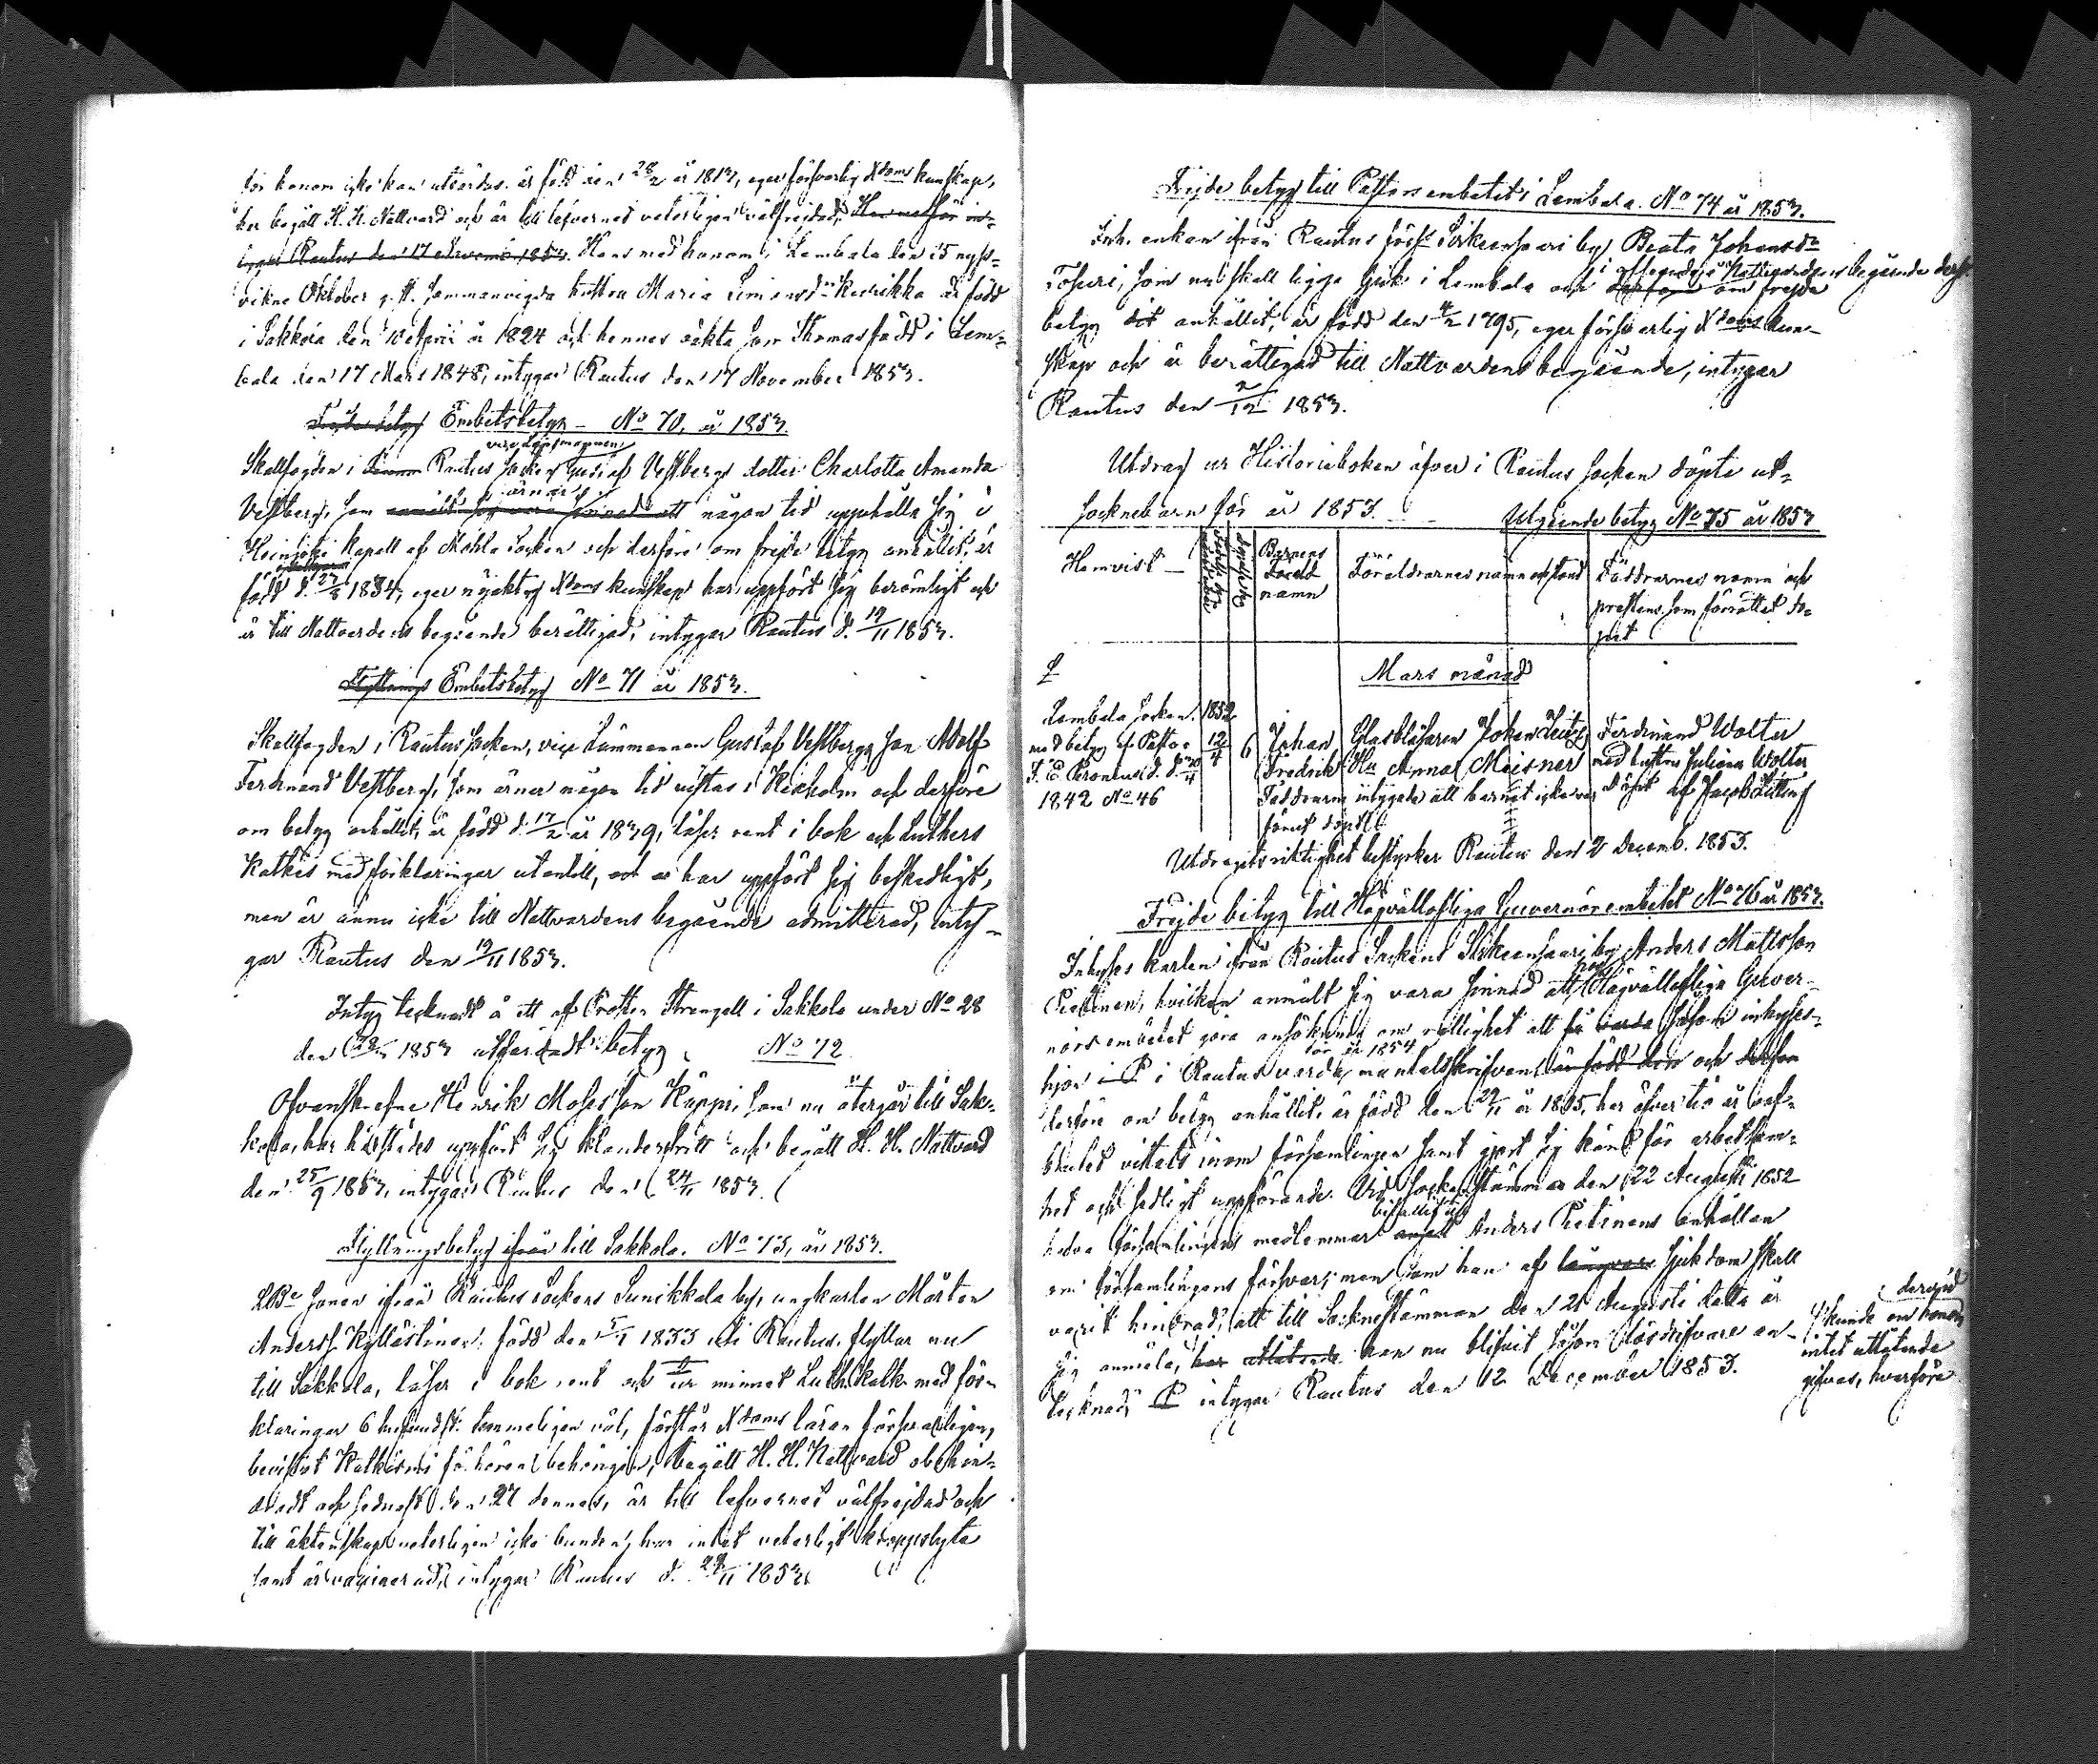 för honom icke kan utfärdas. är född den 28/2 år 1813, eger försvarlig Xdoms kunskap,
har begått H. H. Nattvard och är till lefvernet veterligen välfrejdad,
intygar Rautus den 17 November 1853. Hans med honom i Lembala den 15 nyss-
vikne Oktober sammanvigda hustru Maria Simonsdr är född
i Sakkola den 10 April år 1824 och hennes oäkta son Thomas född i Lem-
bala den 17 Mars 1848, intygar Rautus den 17 November 1853.
Frejde betyg Embetsbetyg – No 70. år 1853.
vice Länsmannen
Skallfogden i Rautus Socken Gustaf Vestbergs dotter Charlotta Amanda
ärnar
Vestberg, som anmält sig vara sinnad att någon tid uppehålla sig i
Kapell af Mohla Socken och derföre om frejde betyg anhållit, är
född d. 27/8 1834, eger nöjaktig Xdoms kunskap har uppfört sig berömligt och
är till Nattvardens begående berättigad, intygar Rautus d. 19/11 1853.
Flyttnings Embetsbetyg No 71 år 1853.
Skallfogden i Rautus Socken, vice Länsmannen Gustaf Vestbergs son Adolf
Ferdinand Vestberg, som ärnar någon tid vistas i Kexholm och derföre
om betyg anhållit, är född d. 17/2 år 1839, läser rent i bok och Luthers
Katkes med förklaringar utantill, och har uppfört sig beskedligt,
men är ännu icke till Nattvardens begående admitterad, inty-
gar Rautus den 19/11 1853.
Intyg tecknadt å ett af Prosten Strengell i Sakkola under No 28
den 1853 utfärdadt betyg. No 72
Ofvanskrefne Henrik Mosesson Käppi, som nu återgår till Sak-
kola, har härstädes uppfört sig klanderfritt och begått H. H. Nattvard
den 25/9 1853, intygar Rautus den 24/11 1853.
Flyttningsbetyg ifrån till Sakkola. No 73, år 1853.
Sonen ifrån Rautus Sockens Sunikkala by, ungkarlen Mårten
Anderss. Kyllästinen, född den 1833 i Rautus, flyttar nu
till Sakkola, läser i bok rent och ur minnet Luth. Katk. med för-
klaringar 6 hufvudst. temmeligen väl, förstår Xdoms läran försvarligen,
bevistat Katkismi förhören behörigen, begått H. H. Nattvard obehin-
dradt och sednast den 27 dennes, är till lefvernet välfrejdad och
till äktenskap veterligen icke bunden, har intet veterligt kroppslyte
samt är vaccinerad, intygar Rautus d. 28/11 1853.
Frejde betyg till Pastorsembetet i Lembala. No 74 år 1853.
Inh. enkan ifrån Rautus förs. Sirkeensaari by Beata Johansdr
i afseende å Nattvardens begående derst.
som nu skall ligga sjuk i Lembala och derföre om frejde
betyg dit anhållit, är född den 4/2 1795, eger försvarlig Xdoms kun-
skap och är berättigad till Nattvardens begående, intygar
Rautus den 2/12 1853.
Utdrag ur Historieboken öfver i Rautus Socken döpte ut-
socknebarn för år 1853. Utgående betyg No 75 år 1853
Hemvist – Barnens namn Föräldrarnes namn och stånd Faddrarnes namn och
prestens som förrättat do-
pet
Mars månad
Lembala Socken, 1852 Johan Glasblåsaren Ferdinand Wolter
med betyg af Pastor 12/4 6 Fredrik Hu Anna Meisner med hustru Juliana Wolter
1842 No 46 Faddrarna intygade att barnet icke var döpt af Jacob
förut döpt
Utdragets riktighet bestyrker Rautus den 2 Decemb. 1853.
Frejde betyg till Högvällofliga Guvernörsembetet No 76 år 1853.
Inhyses karlen ifrån Rautus Sockens Sirkeensaari by Anders Mattsson
hos
Pietinen, hvilken anmält sig vara sinnad att Högvällofliga Guver-
nörsembetet göra ansökning om rättighet att få varda såsom inhyses-
för år 1854
hjon i Rautus varda mantalsskrifven är född den och derföre
derföre om betyg anhållit, är född den 29/11 år 1805, har öfver tio år oaf-
brutet vistats inom församlingen samt gjort sig känd för arbetsam-
het och sedligt uppförande. Vid Sockenstämma den 22 Augusti 1852
bifallit till
hafva församlingens medlemmar Anders Pietinens anhållan
om församlingens försvar; men som han af sjukdom skall
varit hindrad att till Socknestämman den 21 Augusti detta år
sig anmäla, har han nu blifvit såsom lösdrifvare an-
tecknad, intygar Rautus den 12 December 1853.
dervid
kunde om honom
intet utlåtande
gifvas, hvarföre